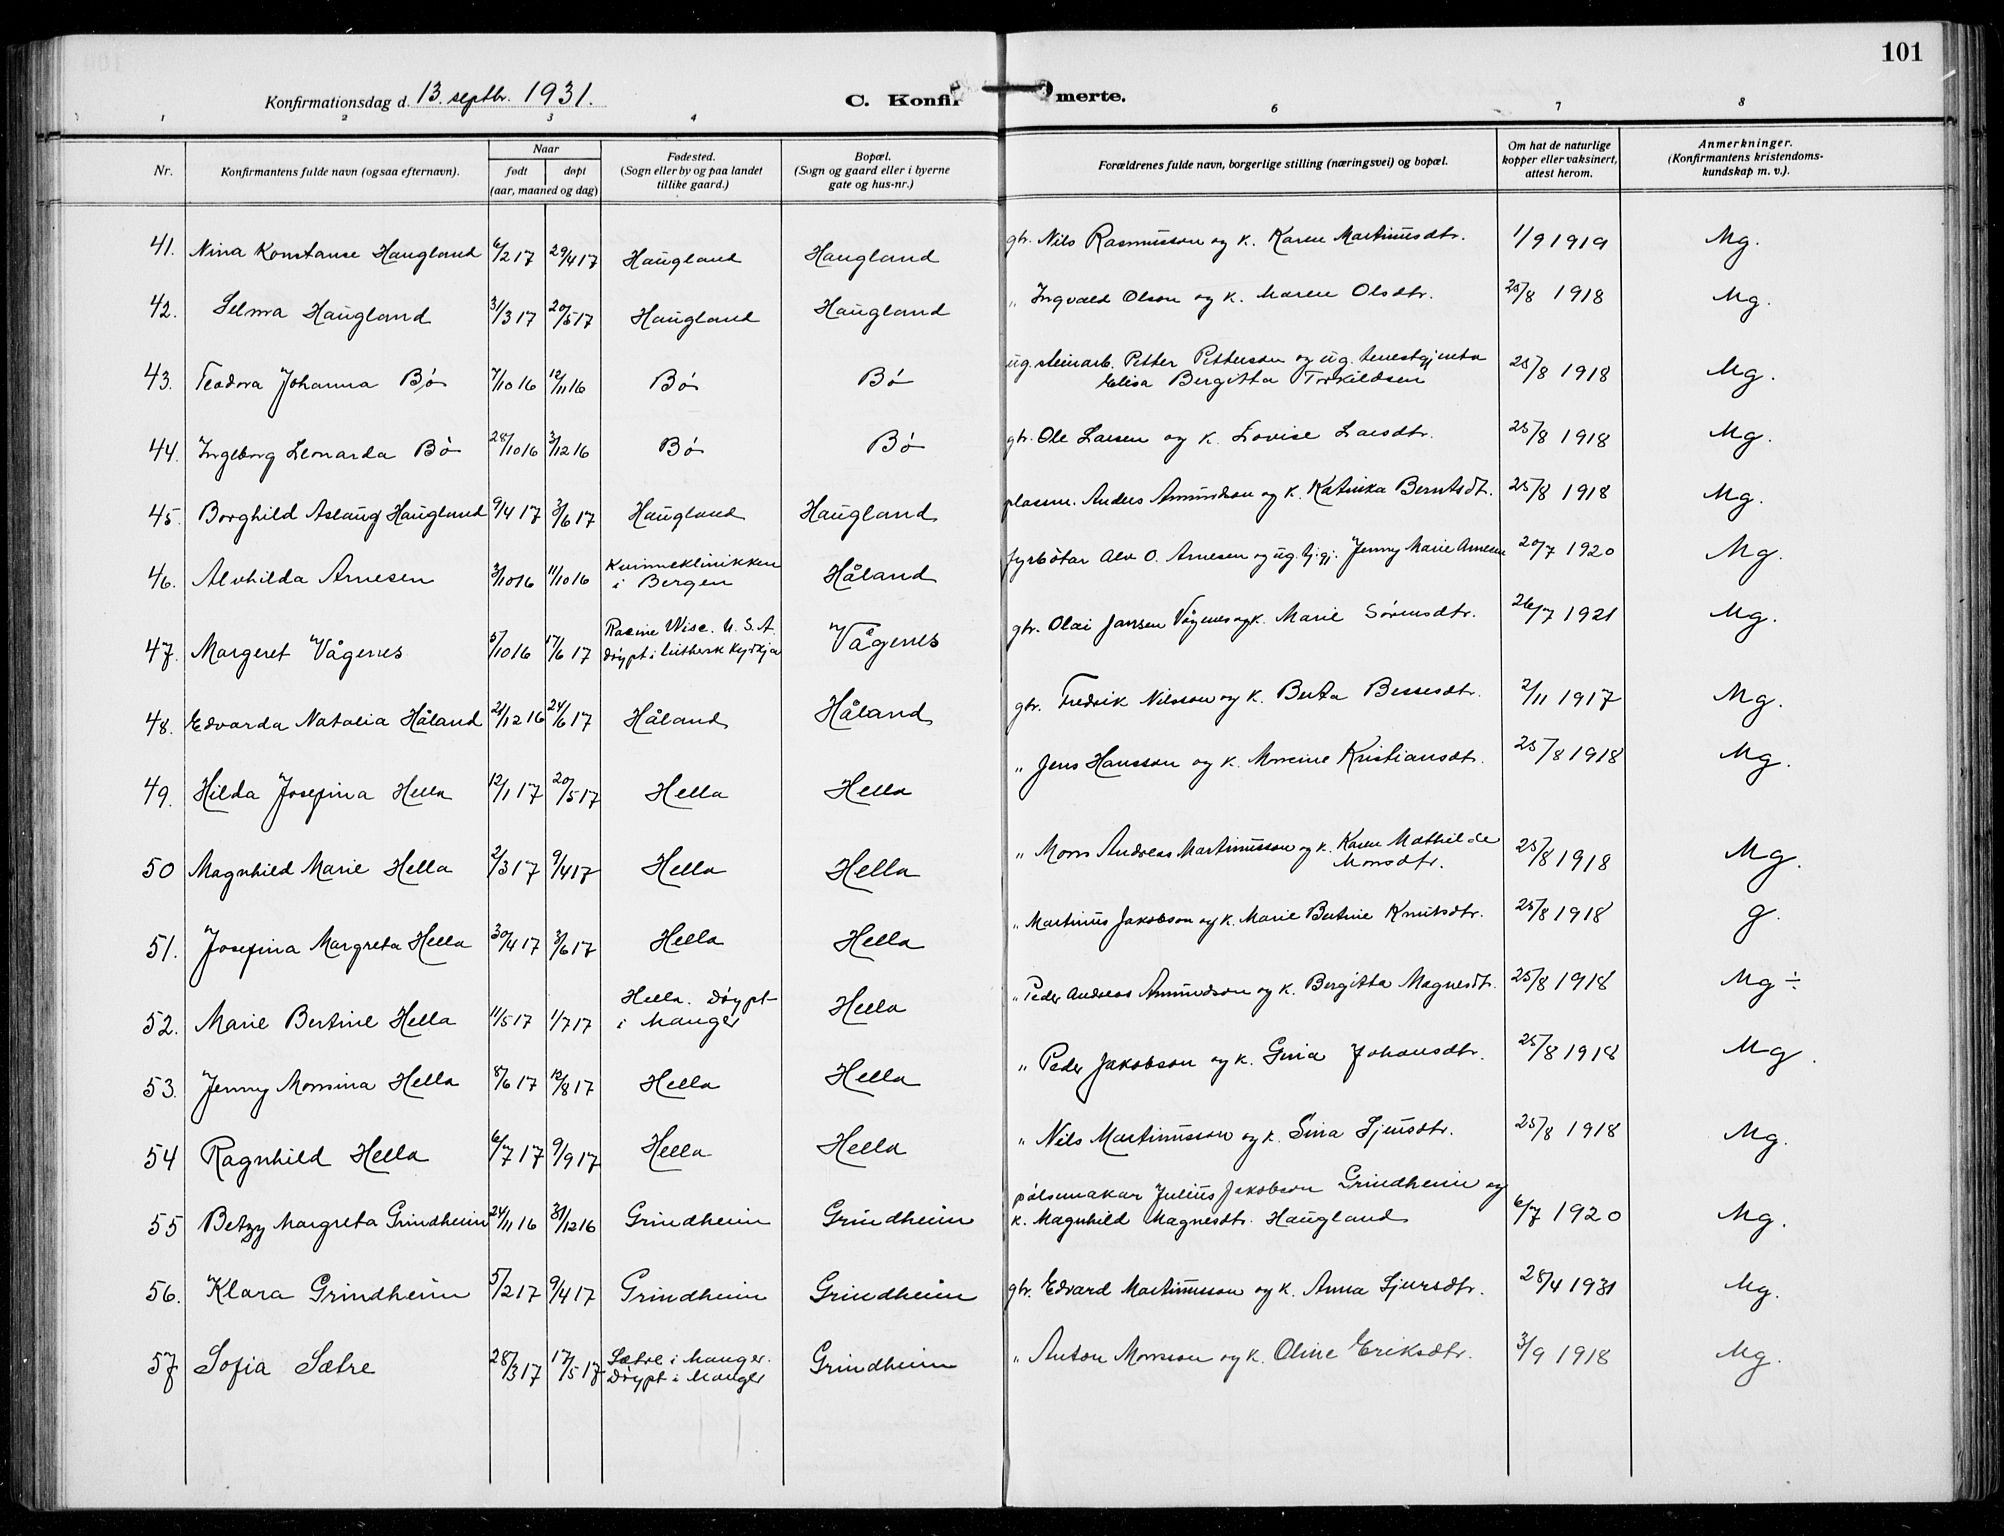 101
Konfirmationsdag d. 13. septbr. 1931.
C. Konfirmerte.
1 2 3 4 6 7 8
Nr.
Konfirmantens fulde navn (ogsaa efternavn).
Naar
født døpt
(aar, maaned og dag)
Fødested.
(Sogn eller by og paa landet
tillike gaard.)
Bopæl.
(Sogn og gaard eller i byerne
gate og hus-nr.)
Forældrenes fulde navn, borgerlige stilling (næringsvei) og bopæl.
Om hat de naturlige
kopper eller vaksinert,
attest herom.
Anmerkninger.
(Konfirmantens kristendoms-
kundskap m. v.).
41. Nina Konstanse Haugland 6/2 17 29/4 17 Haugland Haugland gbr. Nils Rasmusson og k. Karen Martinusdtr. 1/9 1919 Mg.
42. Selma Haugland 3/3 17 20/5 17 Haugland Haugland " Ingvald Olson og k. Maren Olsdtr. 25/8 1918 Mg.
43. Teodora Johanna Bø 7/10 16 12/11 16 Bø Bø ug. steinarb. Petter Petterson og ug. tenestgjenta
Elisa Bergitta Torkildsen 25/8 1918 Mg.
44. Ingeborg Leonarda Bø 28/10 16 3/12 16 Bø Bø gbr. Ole Larsen og k. Lovise Larsdtr. 25/8 1918 Mg.
45. Borghild Aslaug Haugland 9/4 17 3/6 17 Haugland Haugland plassm. Anders Amundson og k. Katinka Berntsdt. 25/8 1918 Mg.
46. Alvhilda Arnesen 3/10 16 11/10 16 Kvinneklinikken
i Bergen Håland fyrbøtar Alv O. Arnesen og ug. tj.gj. Jenny Marie Arnesen 20/7 1920 Mg.
47. Margeret Vågenes 5/10 16 17/6 17 Racine Wisc. U.S.A.
Døypt i luthersk kyrkja Vågenes gbr. Olai Jansen Vågenes og k. Marie Sørensdtr. 26/7 1921 Mg.
48. Edvarda Natalia Håland 21/12 16 24/6 17 Håland Håland gbr. Fredrik Nilsson og k. Berta Bessesdtr. 2/11 1917 Mg.
49. Hilda Josefina Hella 12/1 17 20/5 17 Hella Hella " Jens Hansson og k. Monsine Kristiansdtr. 25/8 1918 Mg.
50 Magnhild Marie Hella 2/3 17 9/4 17 Hella Hella " Mons Andreas Martinusson og k. Karen Mathilde
Monsdtr. 25/8 1918 Mg.
51. Josefina Margreta Hella 30/4 17 3/6 17 Hella Hella " Martinus Jakobson og k. Marie Bertine Knutsdtr. 25/8 1918 g.
52. Marie Bertine Hella 11/5 17 1/7 17 Hella. Døypt
i Manger Hella " Peder Andreas Amundson og k. Bergitta Magnesdt. 25/8 1918 Mg ÷
53. Jenny Monsina Hella 8/6 17 12/8 17 Hella Hella " Peder Jakobson og k. Gina Johansdtr. 25/8 1918 Mg.
54 Ragnhild Hella 6/7 17 9/9 17 Hella Hella " Nils Martinusson og k. Sina Sjursdtr. 25/8 1918 Mg.
55 Betzy Margreta Grindheim 24/11 16 31/12 16 Grindheim Grindheim pølsemakar Julius Jakobson Grindheim og
k. Magnhild Magnesdtr. Haugland 6/7 1920 Mg.
56. Klara Grindheim 5/2 17 9/4 17 Grindheim Grindheim gbr. Edvard Martinusson og k. Anna Sjursdtr. 28/4 1931 Mg.
57 Sofia Sætre 28/3 17 17/5 17 Sætre i Manger.
Døypt i Manger Grindheim " Anton Monsson og k. Oline Eriksdtr. 3/9 1918 Mg.